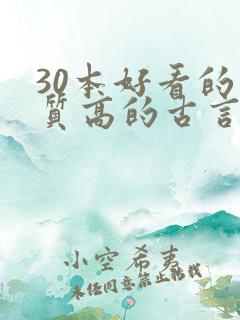 30本好看的
质高的古言
小空希夷
未经同意禁止转载